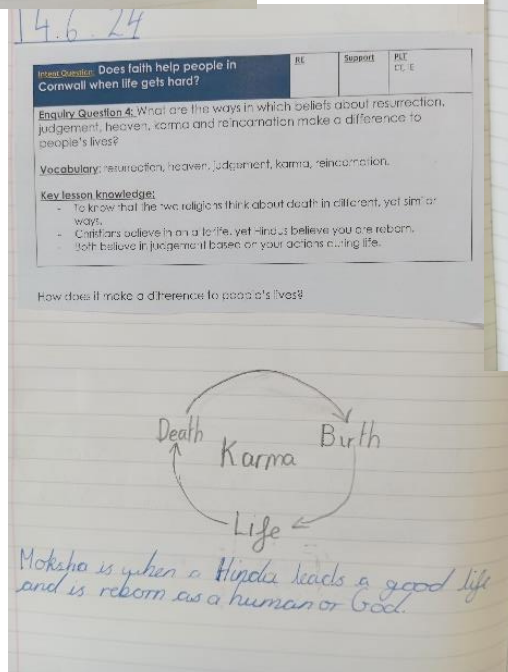 14.6.24
Intent Question: Does faith help people in
Cornwall when life gets hard?
RE
Support
PLT
Enquiry Question 4: What are the ways in which beliefs about resurrection,
judgement, heaven, karma and reincarnation make a difference to
people's lives?
Vocabulary: resurrection, heaven, judgement, karma, reincarnation.
Key lesson knowledge:
- To know that the two religions think about death in different, yet similar
ways.
- Christians believe in an afterlife, yet Hindus believe you are reborn.
- Both believe in judgement based on your actions during life.
How does it make a difference to people's lives?
Death
Birth
Karma
Life
Moksha is when a Hindu leads a good life
and is reborn as a human or God.